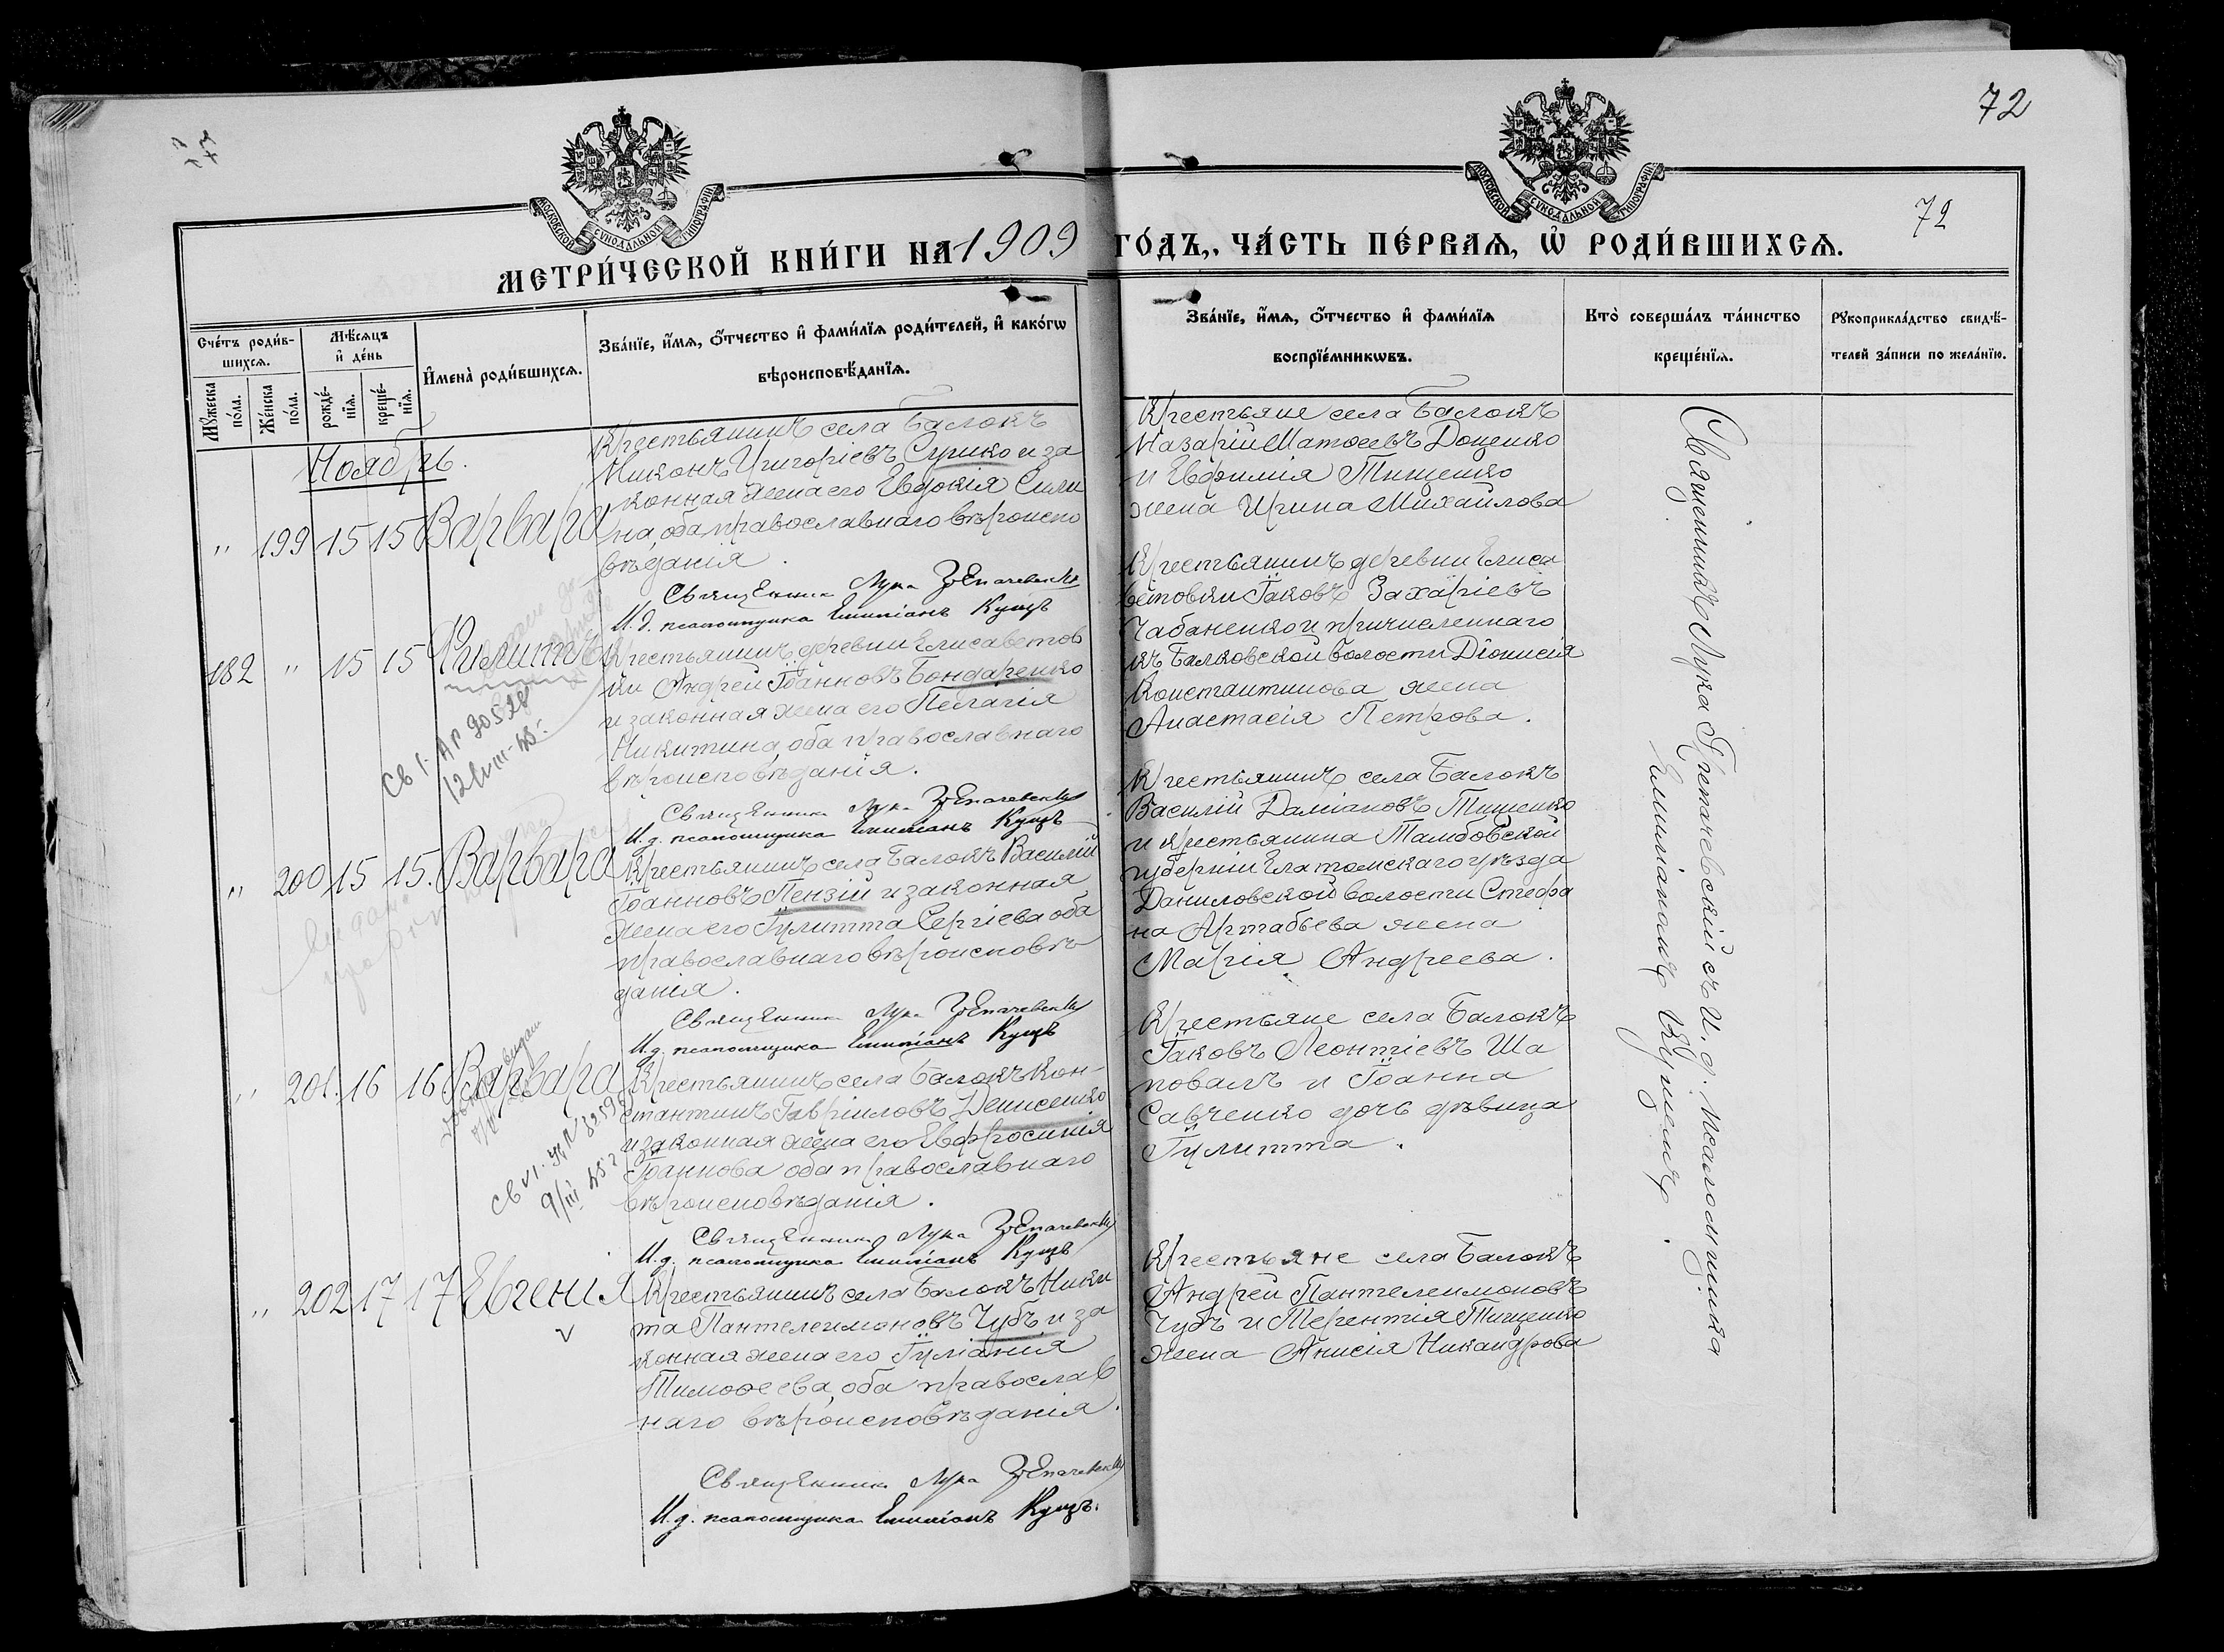 72
72
МОСКОВСКОЙ СѴНОДАЛЬНОЙ ТИПОГРАФІИ
МОСКОВСКОЙ СѴНОДАЛЬНОЙ ТИПОГРАФІИ
МЕТРИ́ЧЕСКОЙ КНИ́ГИ НА 1909 ГО́ДЪ, ЧА́СТЬ ПЕ́РВАѦ, Ѽ РОДИ́ВШИХСѦ.
Сче́тъ роди́в-
шихсѧ.
Мꙋ́жеска
по́ла.
Же́нска
по́ла.
Мѣ́сѧцъ
и҆ де́нь
рожде́-
нїѧ.
креще́-
нїѧ.
И҆мена̀ роди́вшихсѧ.
Зва́нїе, и҆́мѧ, ѻ҆́тчество и҆ фами́лїѧ роди́телей, и҆ како́гѡ
вѣроисповѣ́данїѧ.
Зва́нїе, и҆́мѧ, ѻ҆́тчество и҆ фами́лїѧ
воспрїе́мникѡвъ.
Кто̀ соверша́лъ та́инство
креще́нїѧ.
Рꙋкоприкла́дство свидѣ́-
телей за́писи по жела́нїю.
Ноябрь.
„ 199 15 15 Варвара
Крестьянинъ села Балокъ
Никонъ Григоріевъ Сушко и за
конная жена его Евдокія Сили
на, оба православнаго вѣроиспо
вѣданія.
Священникъ Лука Грепачевскій
И. д. псаломщика Емиліанъ Куцъ
Крестьяне села Балокъ
Назарій Матѳеевъ Доценко
и Евфимія Тищенко
жена Ирина Михайлова
182 „ 15 15 Филиппъ
Крестьянинъ деревни Елисаветов
ки Андрей Іоанновъ Бондаренко
и законная жена его Пелагія
Никитина, оба православнаго
вѣроисповѣданія.
Священникъ Лука Грепачевскій
И. д. псаломщика Емиліанъ Куцъ
Крестьянинъ деревни Елиса
ветовки Іаковъ Захаріевъ
Чабаненко и причисленнаго
къ Балковской волости Діонисія
Константинова жена
Анастасія Петрова.
„ 200 15 15. Варвара
Крестьянинъ села Балокъ Василій
Іоанновъ Пензій и законная
жена его Іулитта Сергіева оба
православнаго вѣроисповѣ
данія.
Священникъ Лука Грепачевскій
И. д. псаломщика Емиліанъ Куцъ
Крестьянинъ села Балокъ
Василій Даміановъ Тищенко
и крестьянина Тамбовской
губерніи Елатомскаго уѣзда
Даниловской волости Стефа
на Артабьева жена
Марія Андреева.
„ 201. 16 16 Варвара
Крестьянинъ села Балокъ Кон-
стантинъ Гавріиловъ Денисенко
и законная жена его Евфросинія
Іоаннова оба православнаго
вѣроисповѣданія.
Священникъ Лука Грепачевскій
И. д. псаломщика Емиліанъ Куцъ
Крестьяне села Балокъ
Іаковъ Леонтіевъ Ша
повалъ и Іоанна
Савченко дочь дѣвица
Іулитта.
„ 202 17 17 Евгенія
Крестьянинъ села Балокъ Ники
та Пантелеимоновъ Чубъ и за
конная жена его Іуліанія
Тимоѳеева, оба православ
наго вѣроисповѣданія.
Священникъ Лука Грепачевскій
И. д. псаломщика Емиліанъ Куцъ.
Крестьяне села Балокъ
Андрей Пантелеимоновъ
Чубъ и Терентія Тищенко
жена Анисія Никандрова
Священникъ Лука Грепачевскій съ И. д. псаломщика
Емиліаномъ Куцемъ.